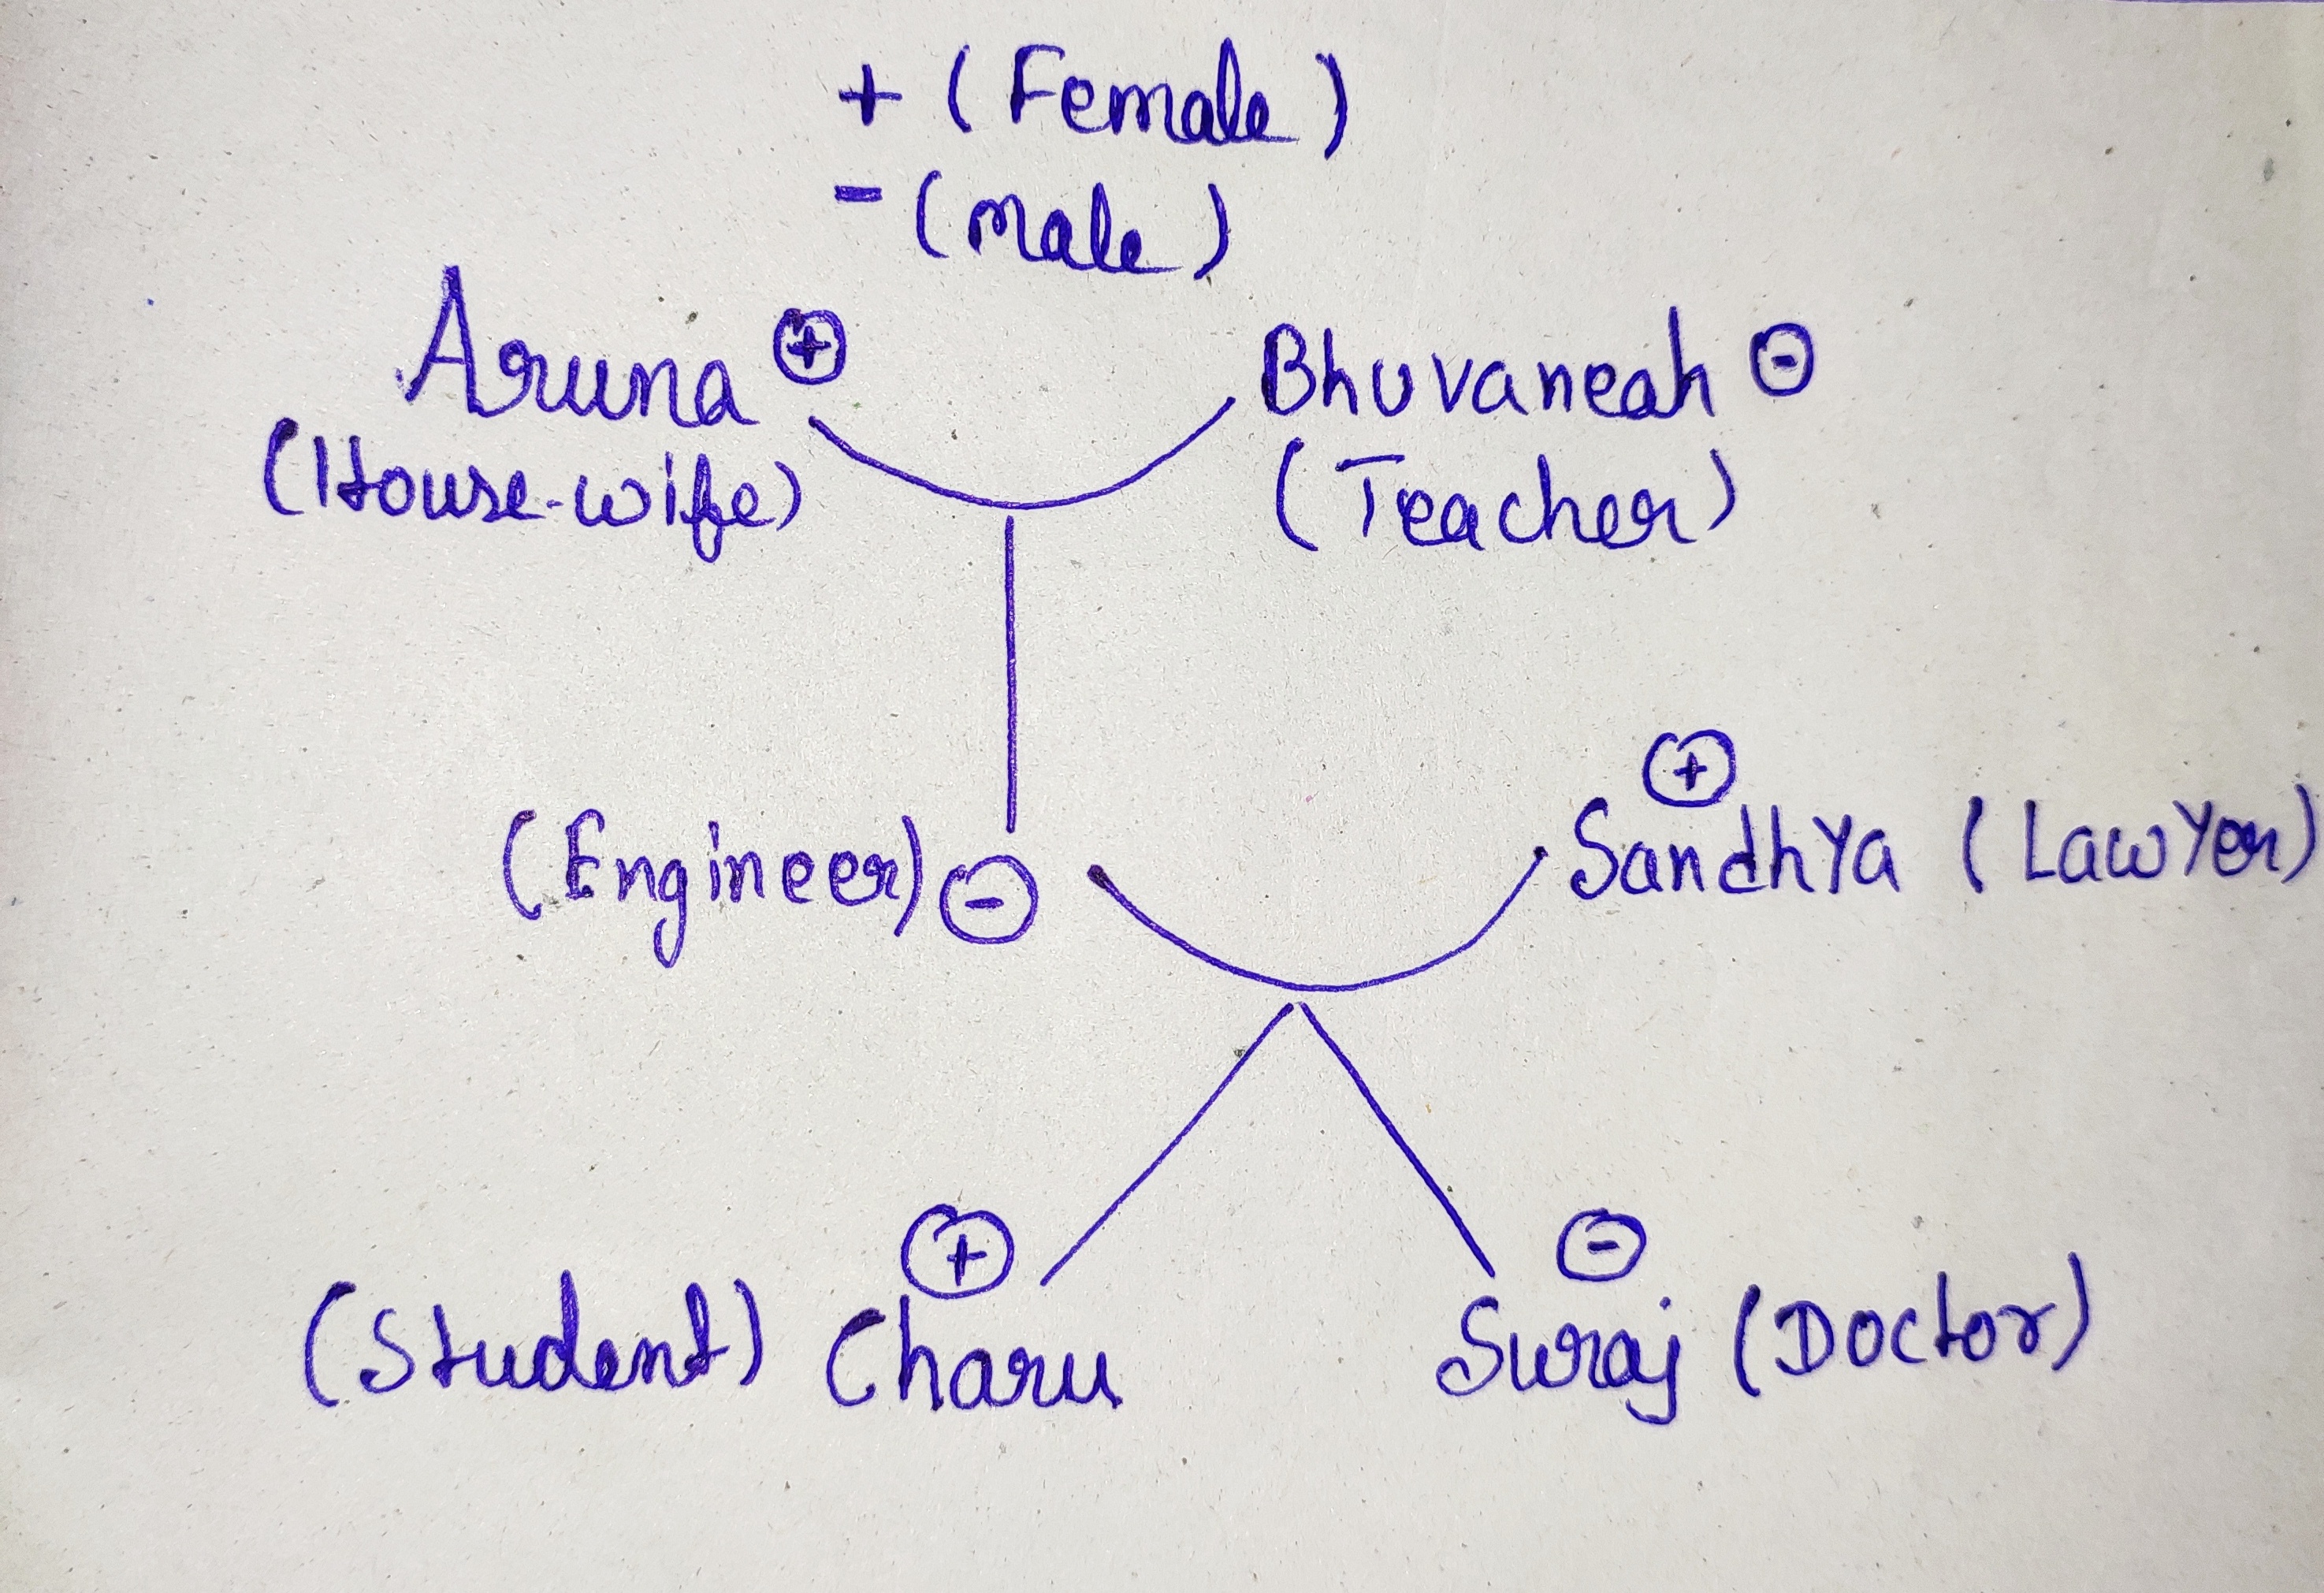 + (Female)
- (Male)
Aruna +
Bhuvaneah -
(House-wife)
(Teacher)
+
(Engineer) -
Sandhya (Lawyer)
+
-
(Student) Charu
Suraj (Doctor)